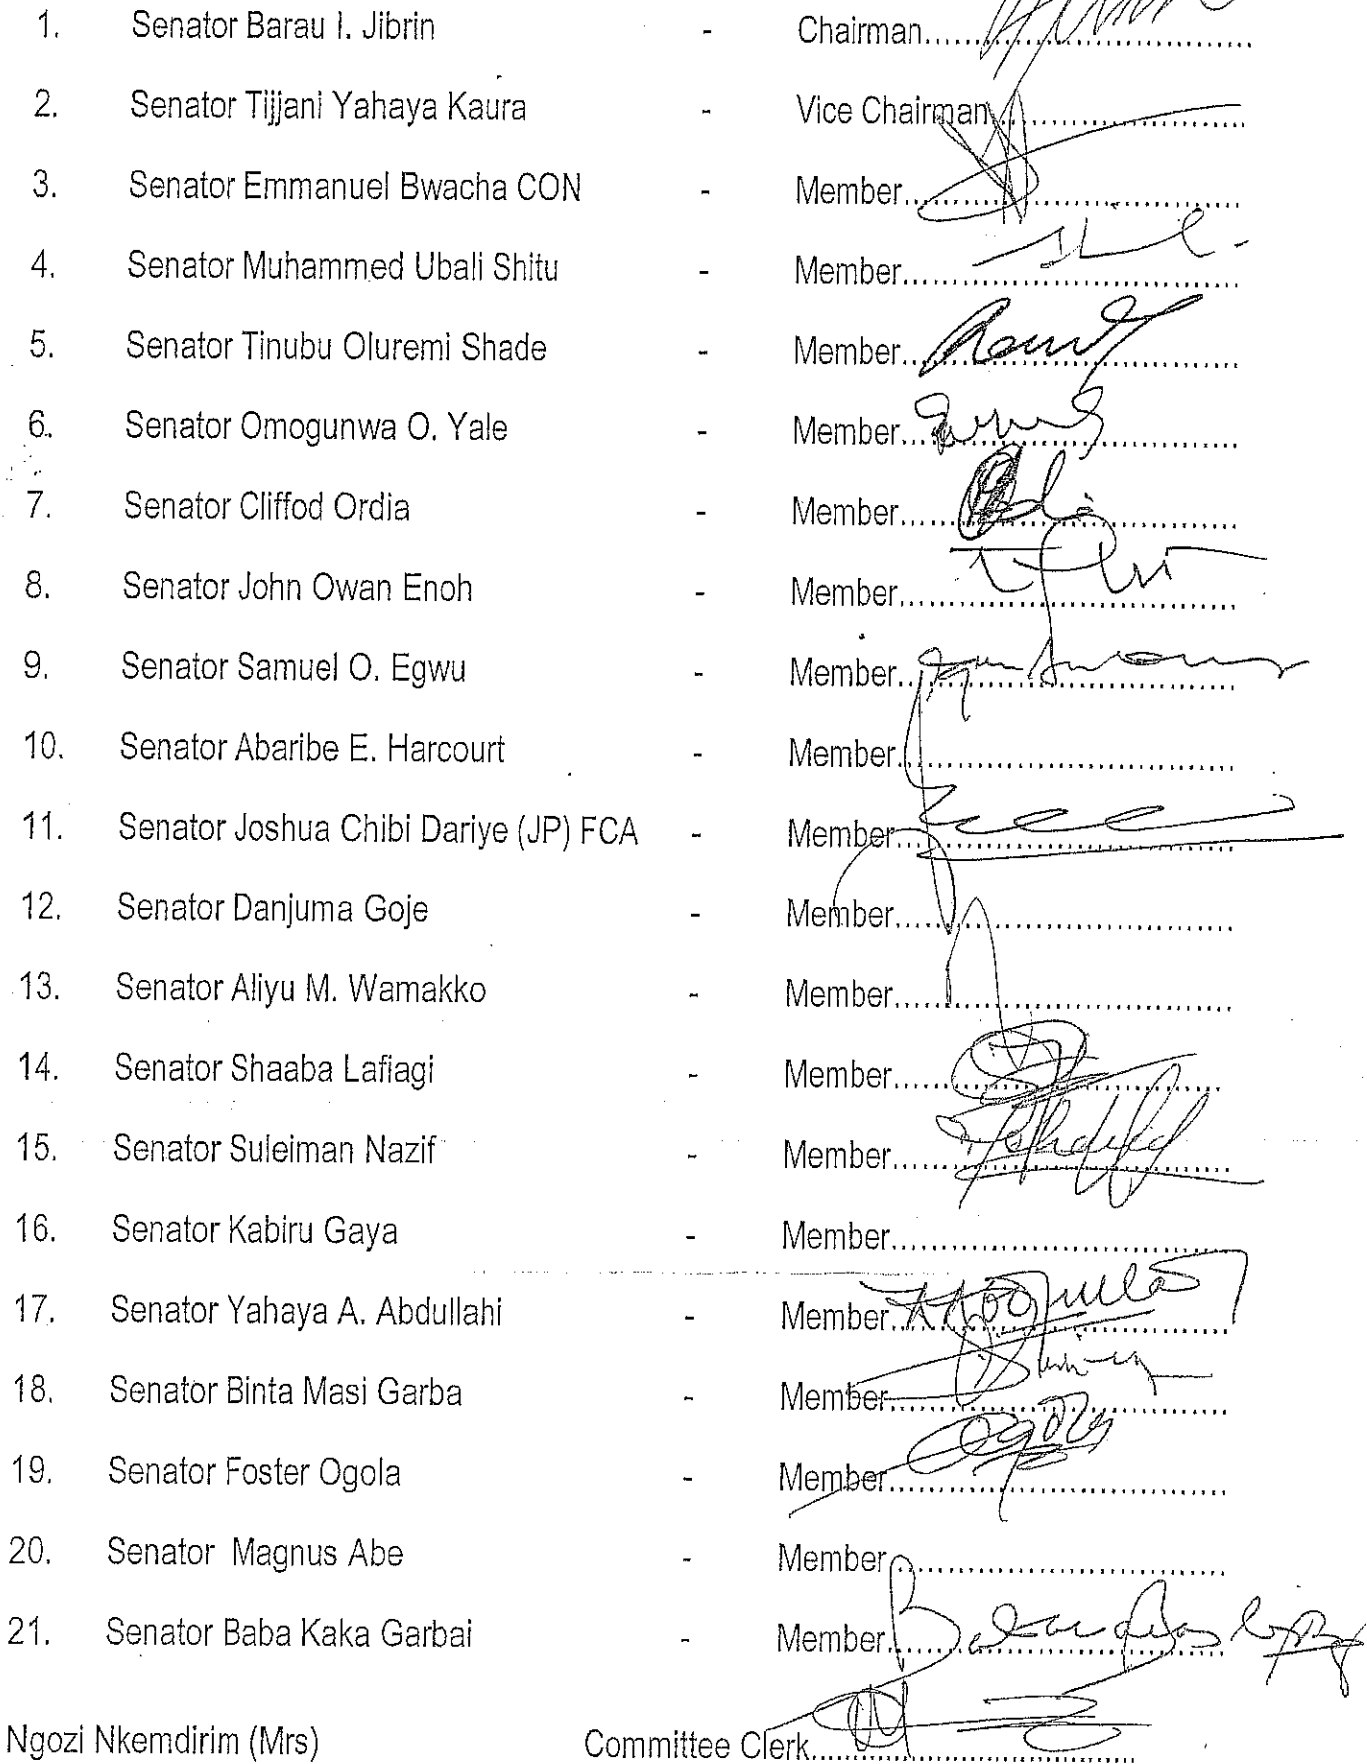 1. Senator Barau I. Jibrin - Chairman..............................
2. Senator Tijjani Yahaya Kaura - Vice Chairman..............................
3. Senator Emmanuel Bwacha CON - Member..............................
4. Senator Muhammed Ubali Shitu - Member..............................
5. Senator Tinubu Oluremi Shade - Member..............................
6. Senator Omogunwa O. Yale - Member..............................
7. Senator Cliffod Ordia - Member..............................
8. Senator John Owan Enoh - Member..............................
9. Senator Samuel O. Egwu - Member..............................
10. Senator Abaribe E. Harcourt - Member..............................
11. Senator Joshua Chibi Dariye (JP) FCA - Member..............................
12. Senator Danjuma Goje - Member..............................
13. Senator Aliyu M. Wamakko - Member..............................
14. Senator Shaaba Lafiagi - Member..............................
15. Senator Suleiman Nazif - Member..............................
16. Senator Kabiru Gaya - Member..............................
17. Senator Yahaya A. Abdullahi - Member..............................
18. Senator Binta Masi Garba - Member..............................
19. Senator Foster Ogola - Member..............................
20. Senator Magnus Abe - Member..............................
21. Senator Baba Kaka Garbai - Member..............................
Ngozi Nkemdirim (Mrs) Committee Clerk..............................